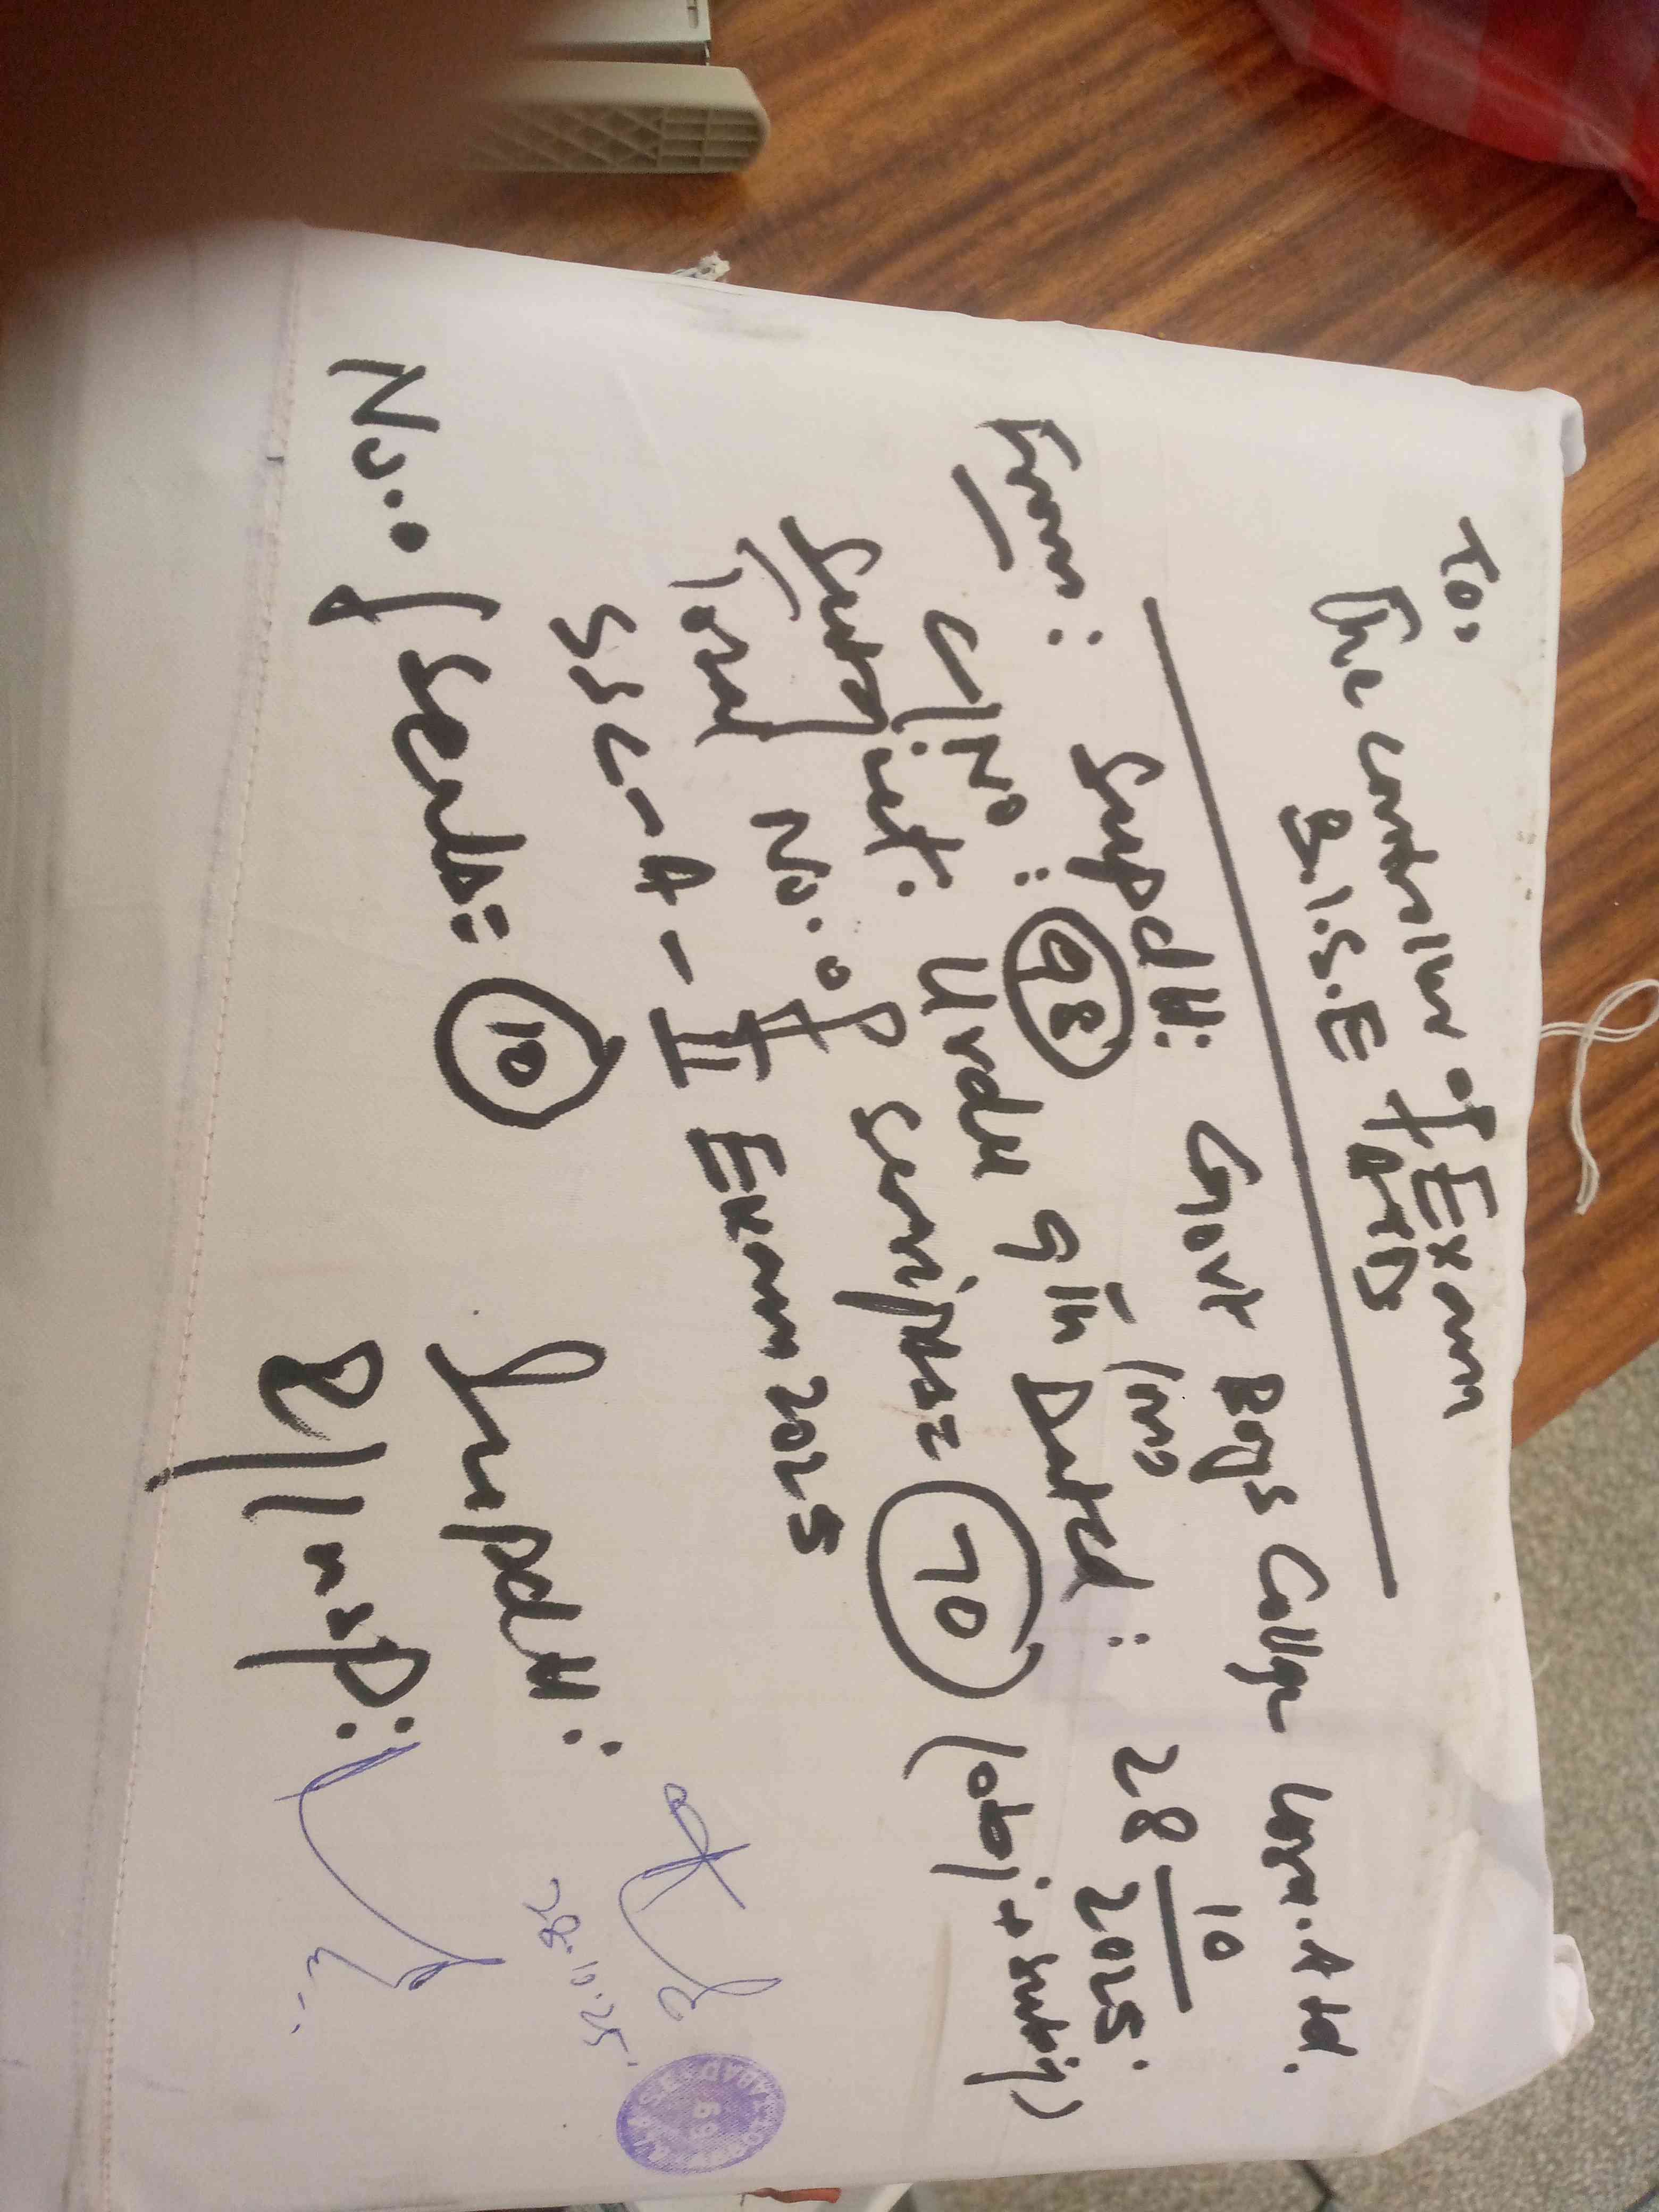 To,
The Controller of Exam
B.I.S.E Attd
From: Supdtt: Govt Boys College Attd.
C/No: 98 (m)
Subject: Urdu 9th Dated: 28 10/2025.
Total No. of scripts= 70 (obj + subj)
SSC-A-II Exam 2025
No. of Seals= 10
Supdtt:
28.10.25
D/Insp:
98